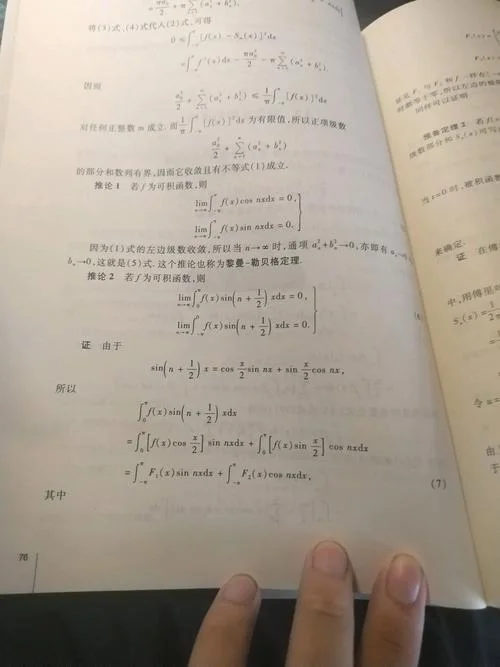 将(3)式、(4)式代入(2)式,可得
0 ≤ ∫_{-π}^{π} [f(x) - S_m(x)]²dx
= ∫_{-π}^{π} f²(x)dx - πa₀²/2 - π∑_{n=1}^{m}(a_n² + b_n²),
因而
a₀²/2 + ∑_{n=1}^{m}(a_n² + b_n²) ≤ 1/π ∫_{-π}^{π} [f(x)]²dx
对任何正整数 m 成立. 而 1/π ∫_{-π}^{π} [f(x)]²dx 为有限值,所以正项级数
a₀²/2 + ∑_{n=1}^{∞}(a_n² + b_n²)
的部分和数列有界,因而它收敛且有不等式(1)成立.
推论 1 若 f 为可积函数,则
lim_{n→∞} ∫_{-π}^{π} f(x)cos nxdx = 0,
lim_{n→∞} ∫_{-π}^{π} f(x)sin nxdx = 0.
因为(1)式的左边级数收敛,所以当 n→∞ 时,通项 a_n² + b_n²→0,亦即有 a_n→0
b_n→0,这就是(5)式. 这个推论也称为黎曼-勒贝格定理.
推论 2 若 f 为可积函数,则
lim_{n→∞} ∫_{0}^{π} f(x)sin(n + 1/2)xdx = 0,
lim_{n→∞} ∫_{-π}^{0} f(x)sin(n + 1/2)xdx = 0.
证 由于
sin(n + 1/2)x = cos x/2 sin nx + sin x/2 cos nx,
所以
∫_{0}^{π} f(x)sin(n + 1/2)xdx
= ∫_{0}^{π} [f(x)cos x/2]sin nxdx + ∫_{0}^{π} [f(x)sin x/2]cos nxdx
= ∫_{-π}^{π} F₁(x)sin nxdx + ∫_{-π}^{π} F₂(x)cos nxdx, (7)
其中
76
同样可以证明
预备定理 2 若 f(
级数部分和 S_n(x)可写
当 t=0 时,被积函数
来确定.
证 在傅
中,用傅里
S_n(x) =
令
由
于